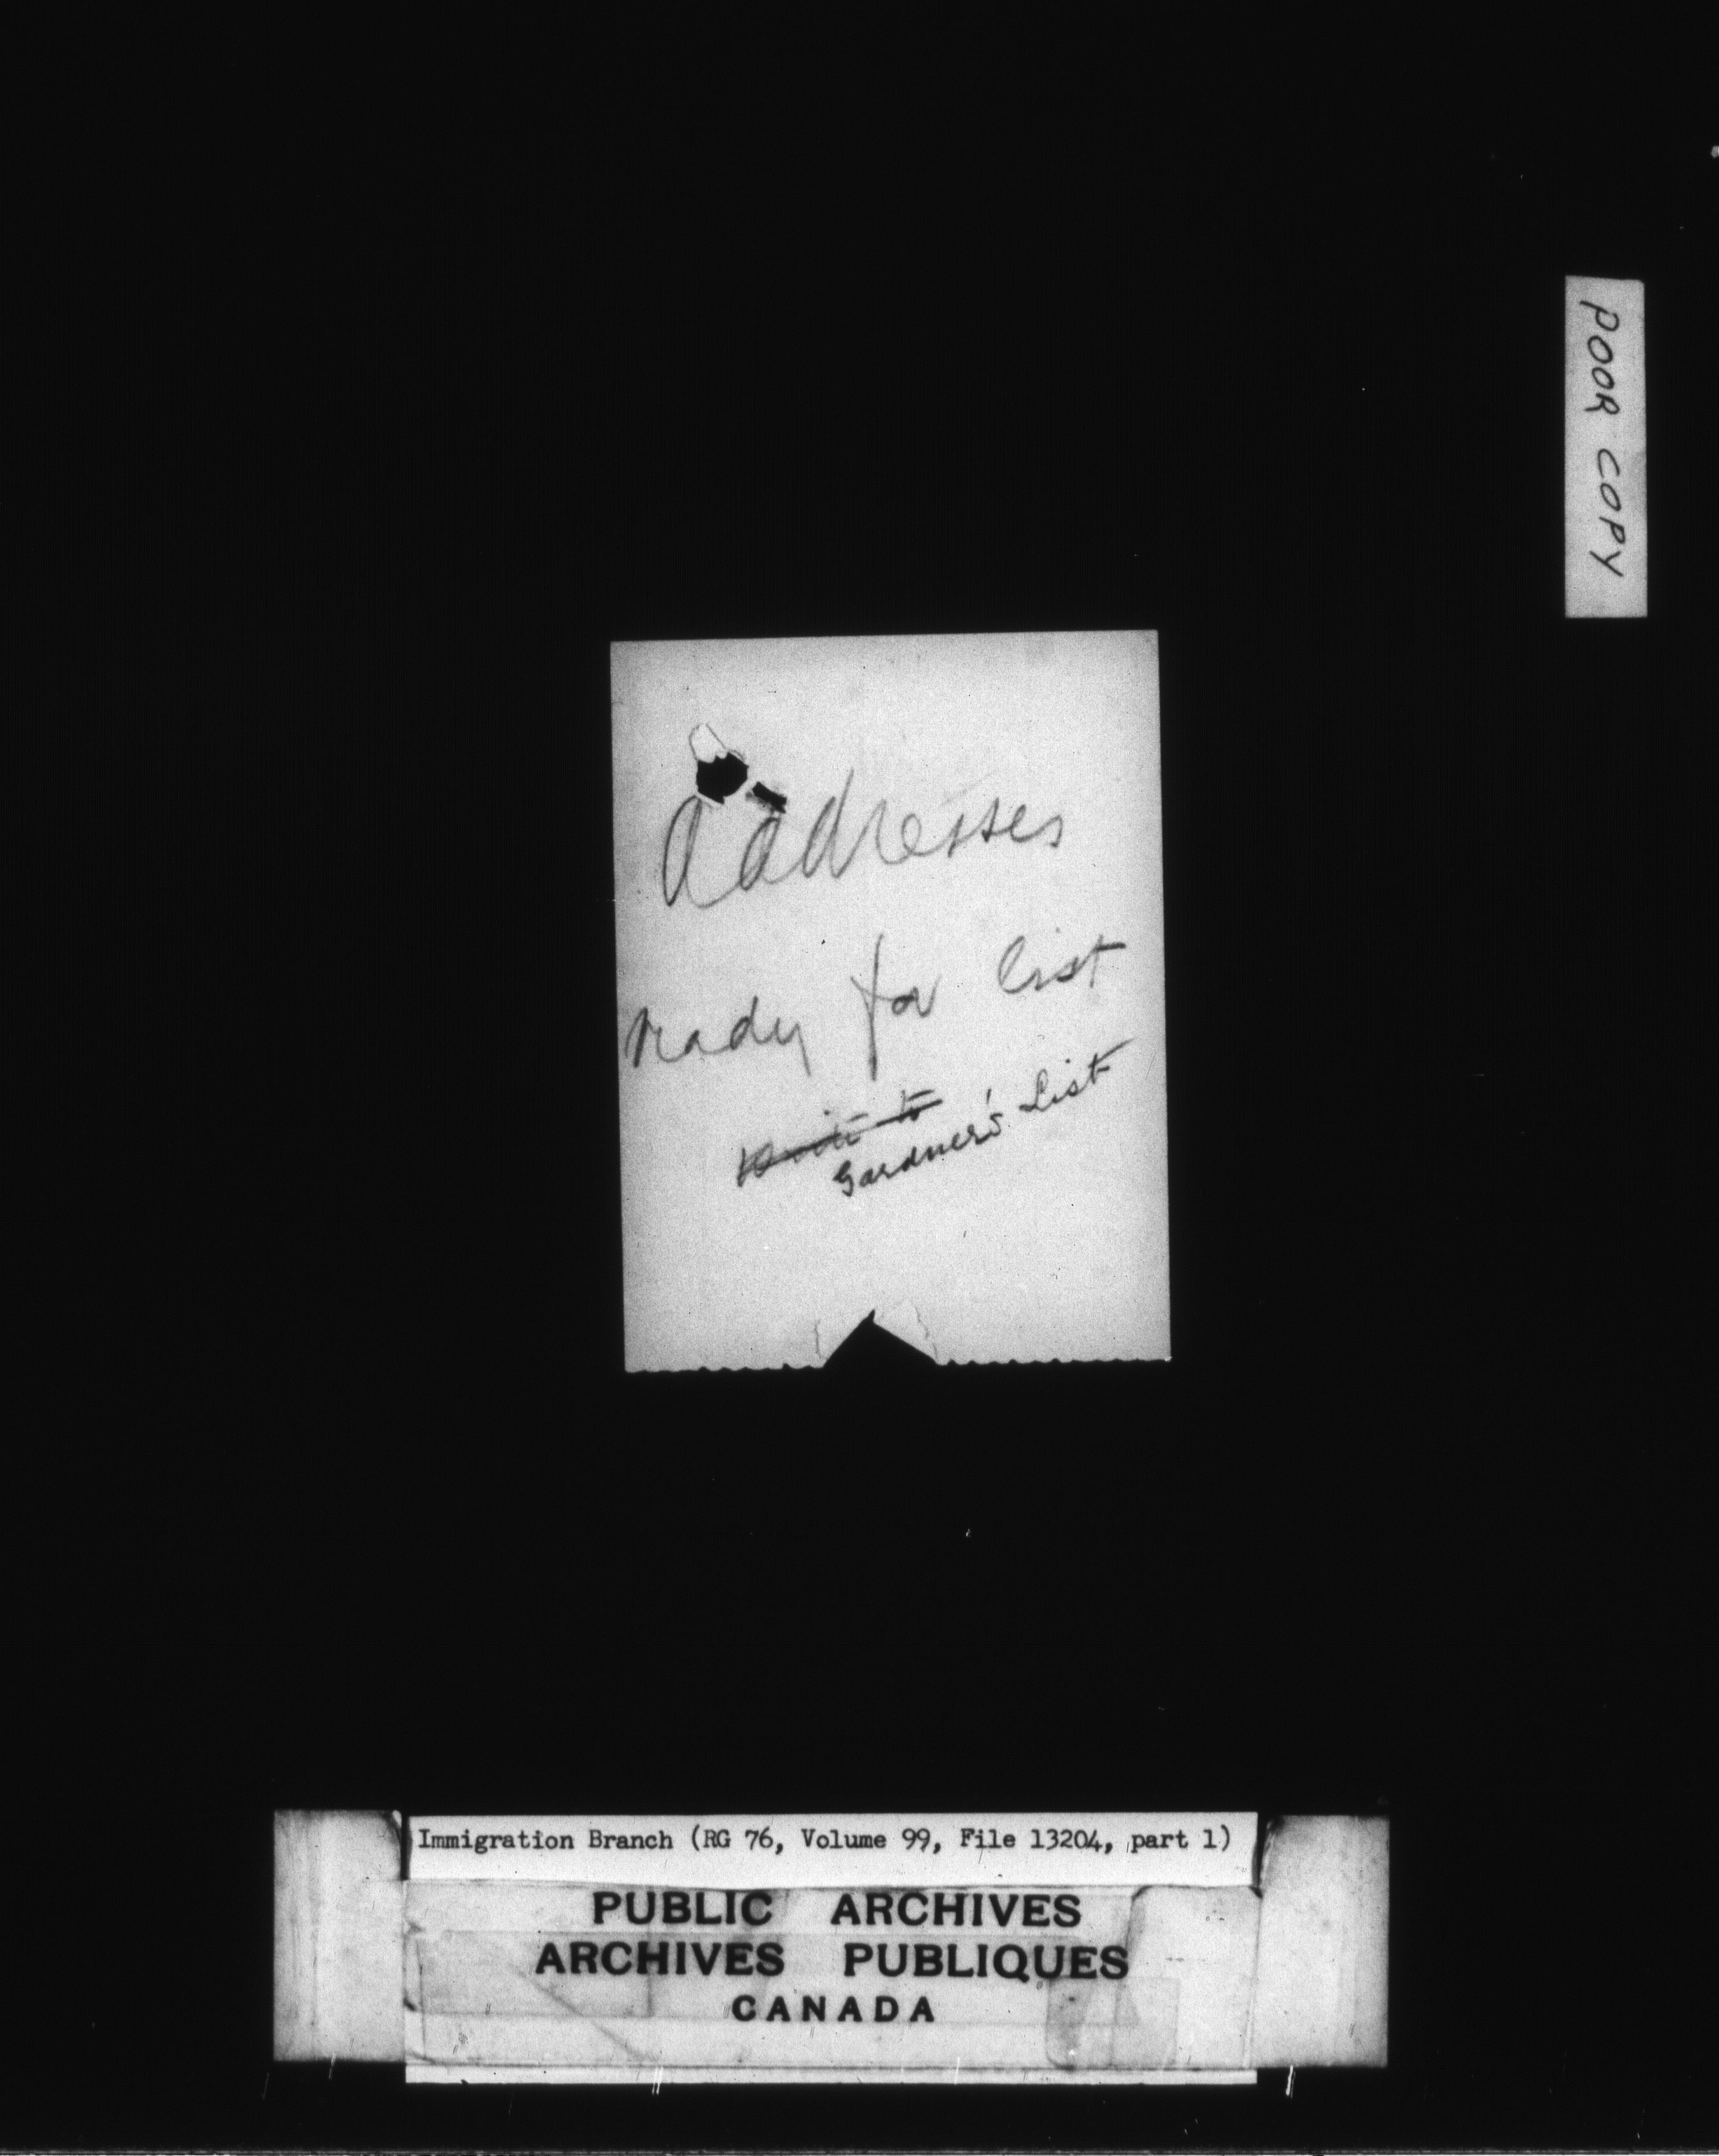 POOR COPY
Addresses
ready for list
Gardner's List
Immigration Branch (RG 76, Volume 99, File 13204, part 1)
PUBLIC ARCHIVES
ARCHIVES PUBLIQUES
CANADA